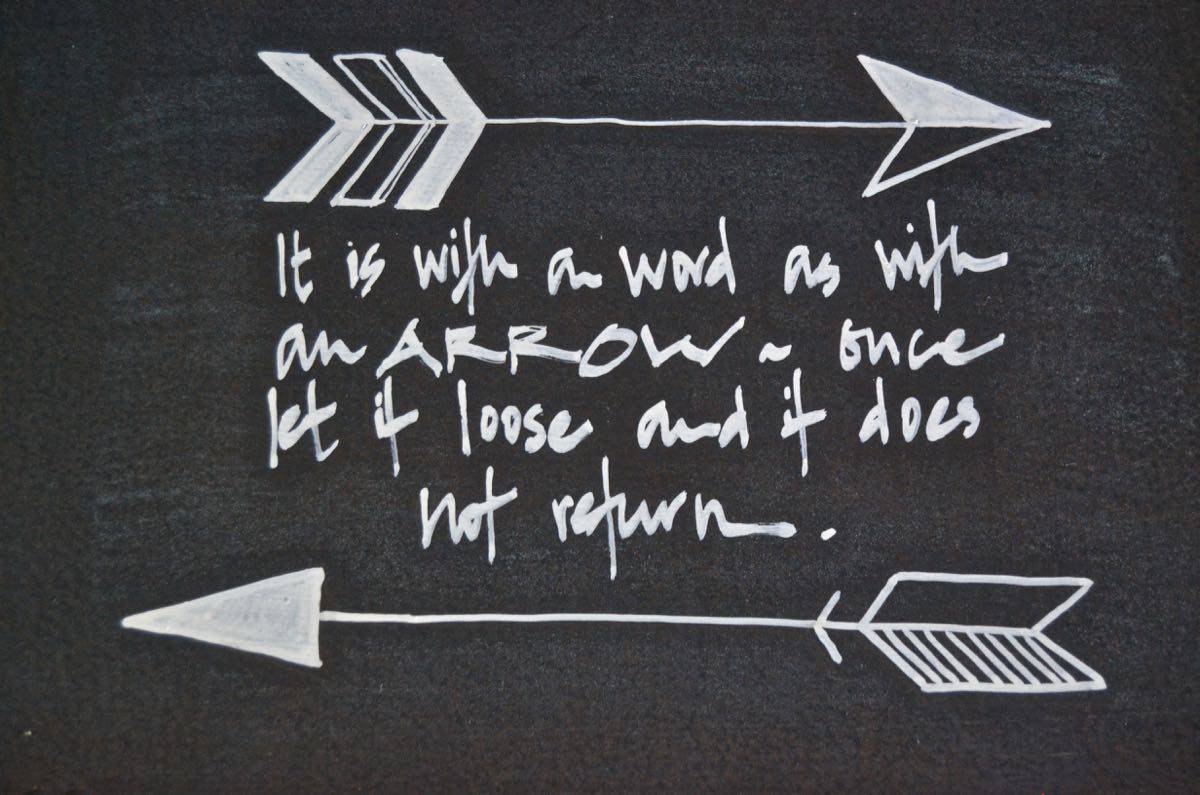 It is with a word as with
an ARROW ~ once
let it loose and it does
not return.